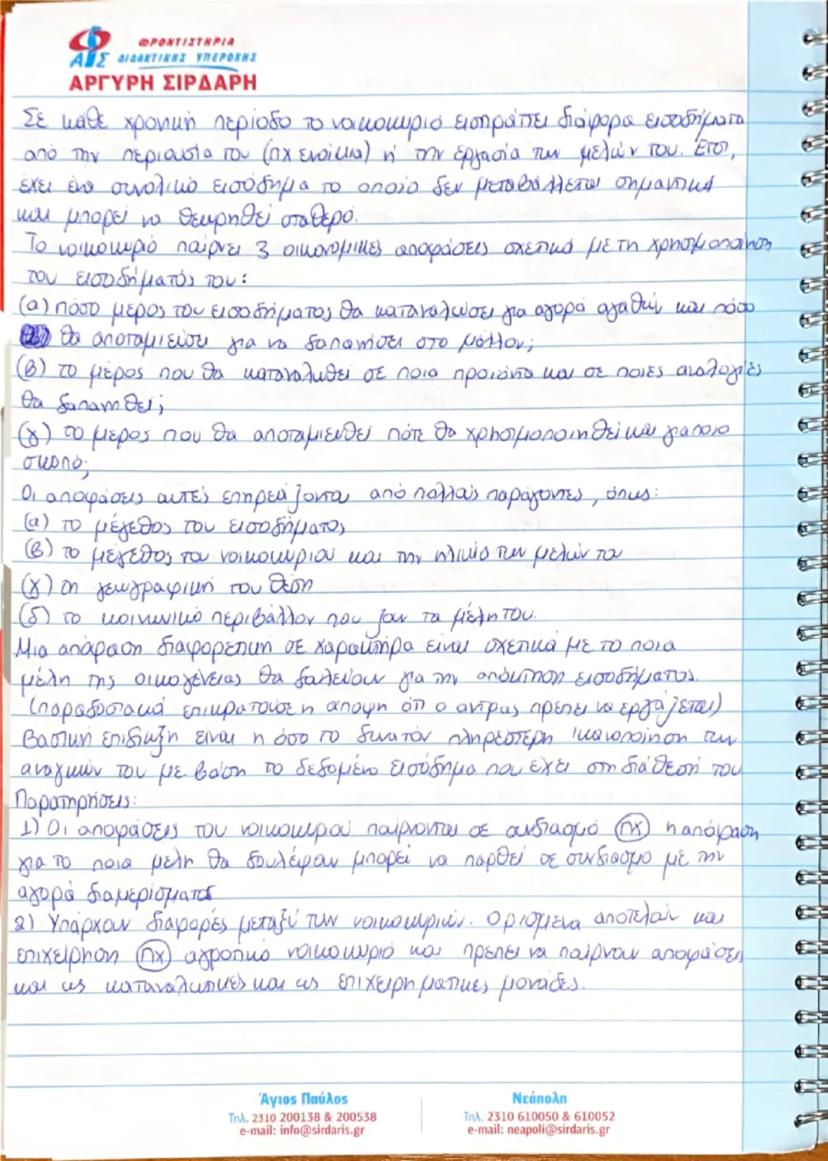 ΦΡΟΝΤΙΣΤΗΡΙΑ
ΑΣ ΔΙΔΑΚΤΙΚΗΣ ΥΠΕΡΟΧΗΣ
ΑΡΓΥΡΗ ΣΙΡΔΑΡΗ
Σε κάθε χρονική περίοδο το νοικοκυριό εισπράττει διάφορα εισοδήματα
από την περιουσία του (πχ ενοίκια) ή την εργασία των μελών του. Έτσι,
έχει ένα συνολικό εισόδημα το οποίο δεν μεταβάλλεται σημαντικά
και μπορεί να θεωρηθεί σταθερό.
Το νοικοκυριό παίρνει 3 οικονομικές αποφάσεις σχετικά με τη χρησιμοποίηση
του εισοδήματός του:
(α) πόσο μέρος του εισοδήματος θα καταναλώσει για αγορά αγαθών και πόσο
θα αποταμιεύσει για να δαπανήσει στο μέλλον;
(β) το μέρος που θα καταναλωθεί σε ποια προϊόντα και σε ποιες αναλογίες
θα δαπανηθεί;
(γ) το μέρος που θα αποταμιευθεί πότε θα χρησιμοποιηθεί και για ποιο
σκοπό;
Οι αποφάσεις αυτές επηρεάζονται από πολλούς παράγοντες, όπως:
(α) το μέγεθος του εισοδήματος
(β) το μέγεθος του νοικοκυριού και την ηλικία των μελών του
(γ) ση γεωγραφική του θέση
(δ) το κοινωνικό περιβάλλον που ζουν τα μέλη του.
Μια απόφαση διαφορετική σε χαρακτήρα είναι σχετικά με το ποια
μέλη της οικογένειας θα δουλεύουν για την απόκτηση εισοδήματος.
(παραδοσιακά επικρατούσε η άποψη ότι ο άντρας πρέπει να εργάζεται)
Βασική επιδίωξη είναι η όσο το δυνατόν πληρέστερη ικανοποίηση των
αναγκών του με βάση το δεδομένο εισόδημα που έχει στη διάθεσή του
Παρατηρήσεις:
1) Οι αποφάσεις του νοικοκυριού παίρνονται σε συνδιασμό πχ η απόφαση
για το ποια μέλη θα δουλέψουν μπορεί να παρθεί σε συνδιασμο με την
αγορά διαμερίσματος
2) Υπάρχουν διαφορές μεταξύ των νοικοκυριών. Ορισμένα αποτελούν και
επιχείρηση πχ αγροτικό νοικοκυριό και πρέπει να παίρνουν αποφάσεις
και ως καταναλωτικές και ως επιχειρηματικες μονάδες.
Άγιος Παύλος
Τηλ. 2310 200138 & 200538
e-mail: info@sirdaris.gr
Νεάπολη
Τηλ. 2310 610050 & 610052
e-mail: neapoli@sirdaris.gr